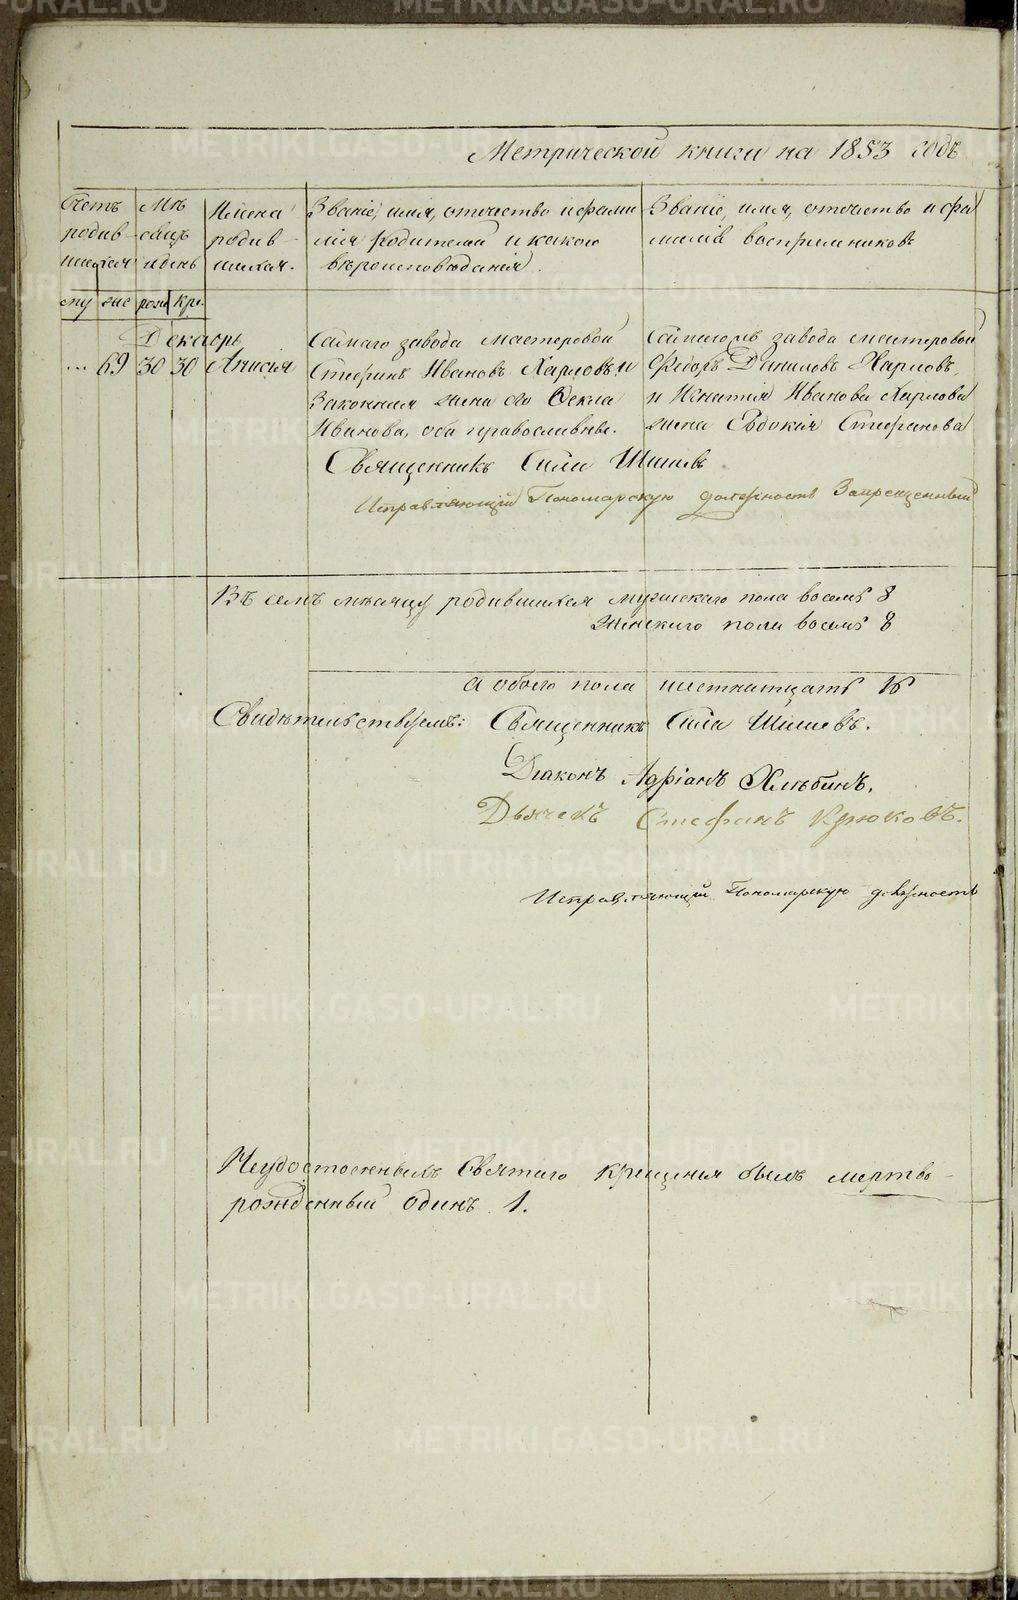 Метрической книги на 1853 годъ
Счетъ родив-шихся
Мѣсяцъ и день
Имена родив-шихся.
Званіе, имя, отчество и фами
лія родителей и какого
вѣроисповѣданія.
Званіе, имя, отчество и фа
милія воспріемниковъ
му же рож кре.
Декабрь
69 30 30 Анисія
Самаго завода мастеровой
Стефанъ Ивановъ Харловъ, и
Законная жена его Ѳекла
Иванова, оба православные.
Самаго завода мастеровой
Ѳедоръ Даниловъ Харловъ,
и Игнатія Иванова Харлова
жена Евдокія Стефанова
Священникъ Сила Шишевъ
Исправляющій Пономарскую должность Запрещенный
Въ семъ мѣсяцѣ родившихся мужескаго пола восемь 8
женскаго пола восемь 8
а обоего пола шестнатцать 16
Свидѣтельствуемъ: Священникъ Сила Шишевъ.
Діаконъ Адріанъ Хлѣбинъ.
Дьячекъ Стефанъ Крюковъ.
Исправляющій Пономарскую должность
Неудостоенныхъ Святаго крещенія былъ мертво-
рожденный одинъ 1.
METRIKI.GASO-URAL.RU